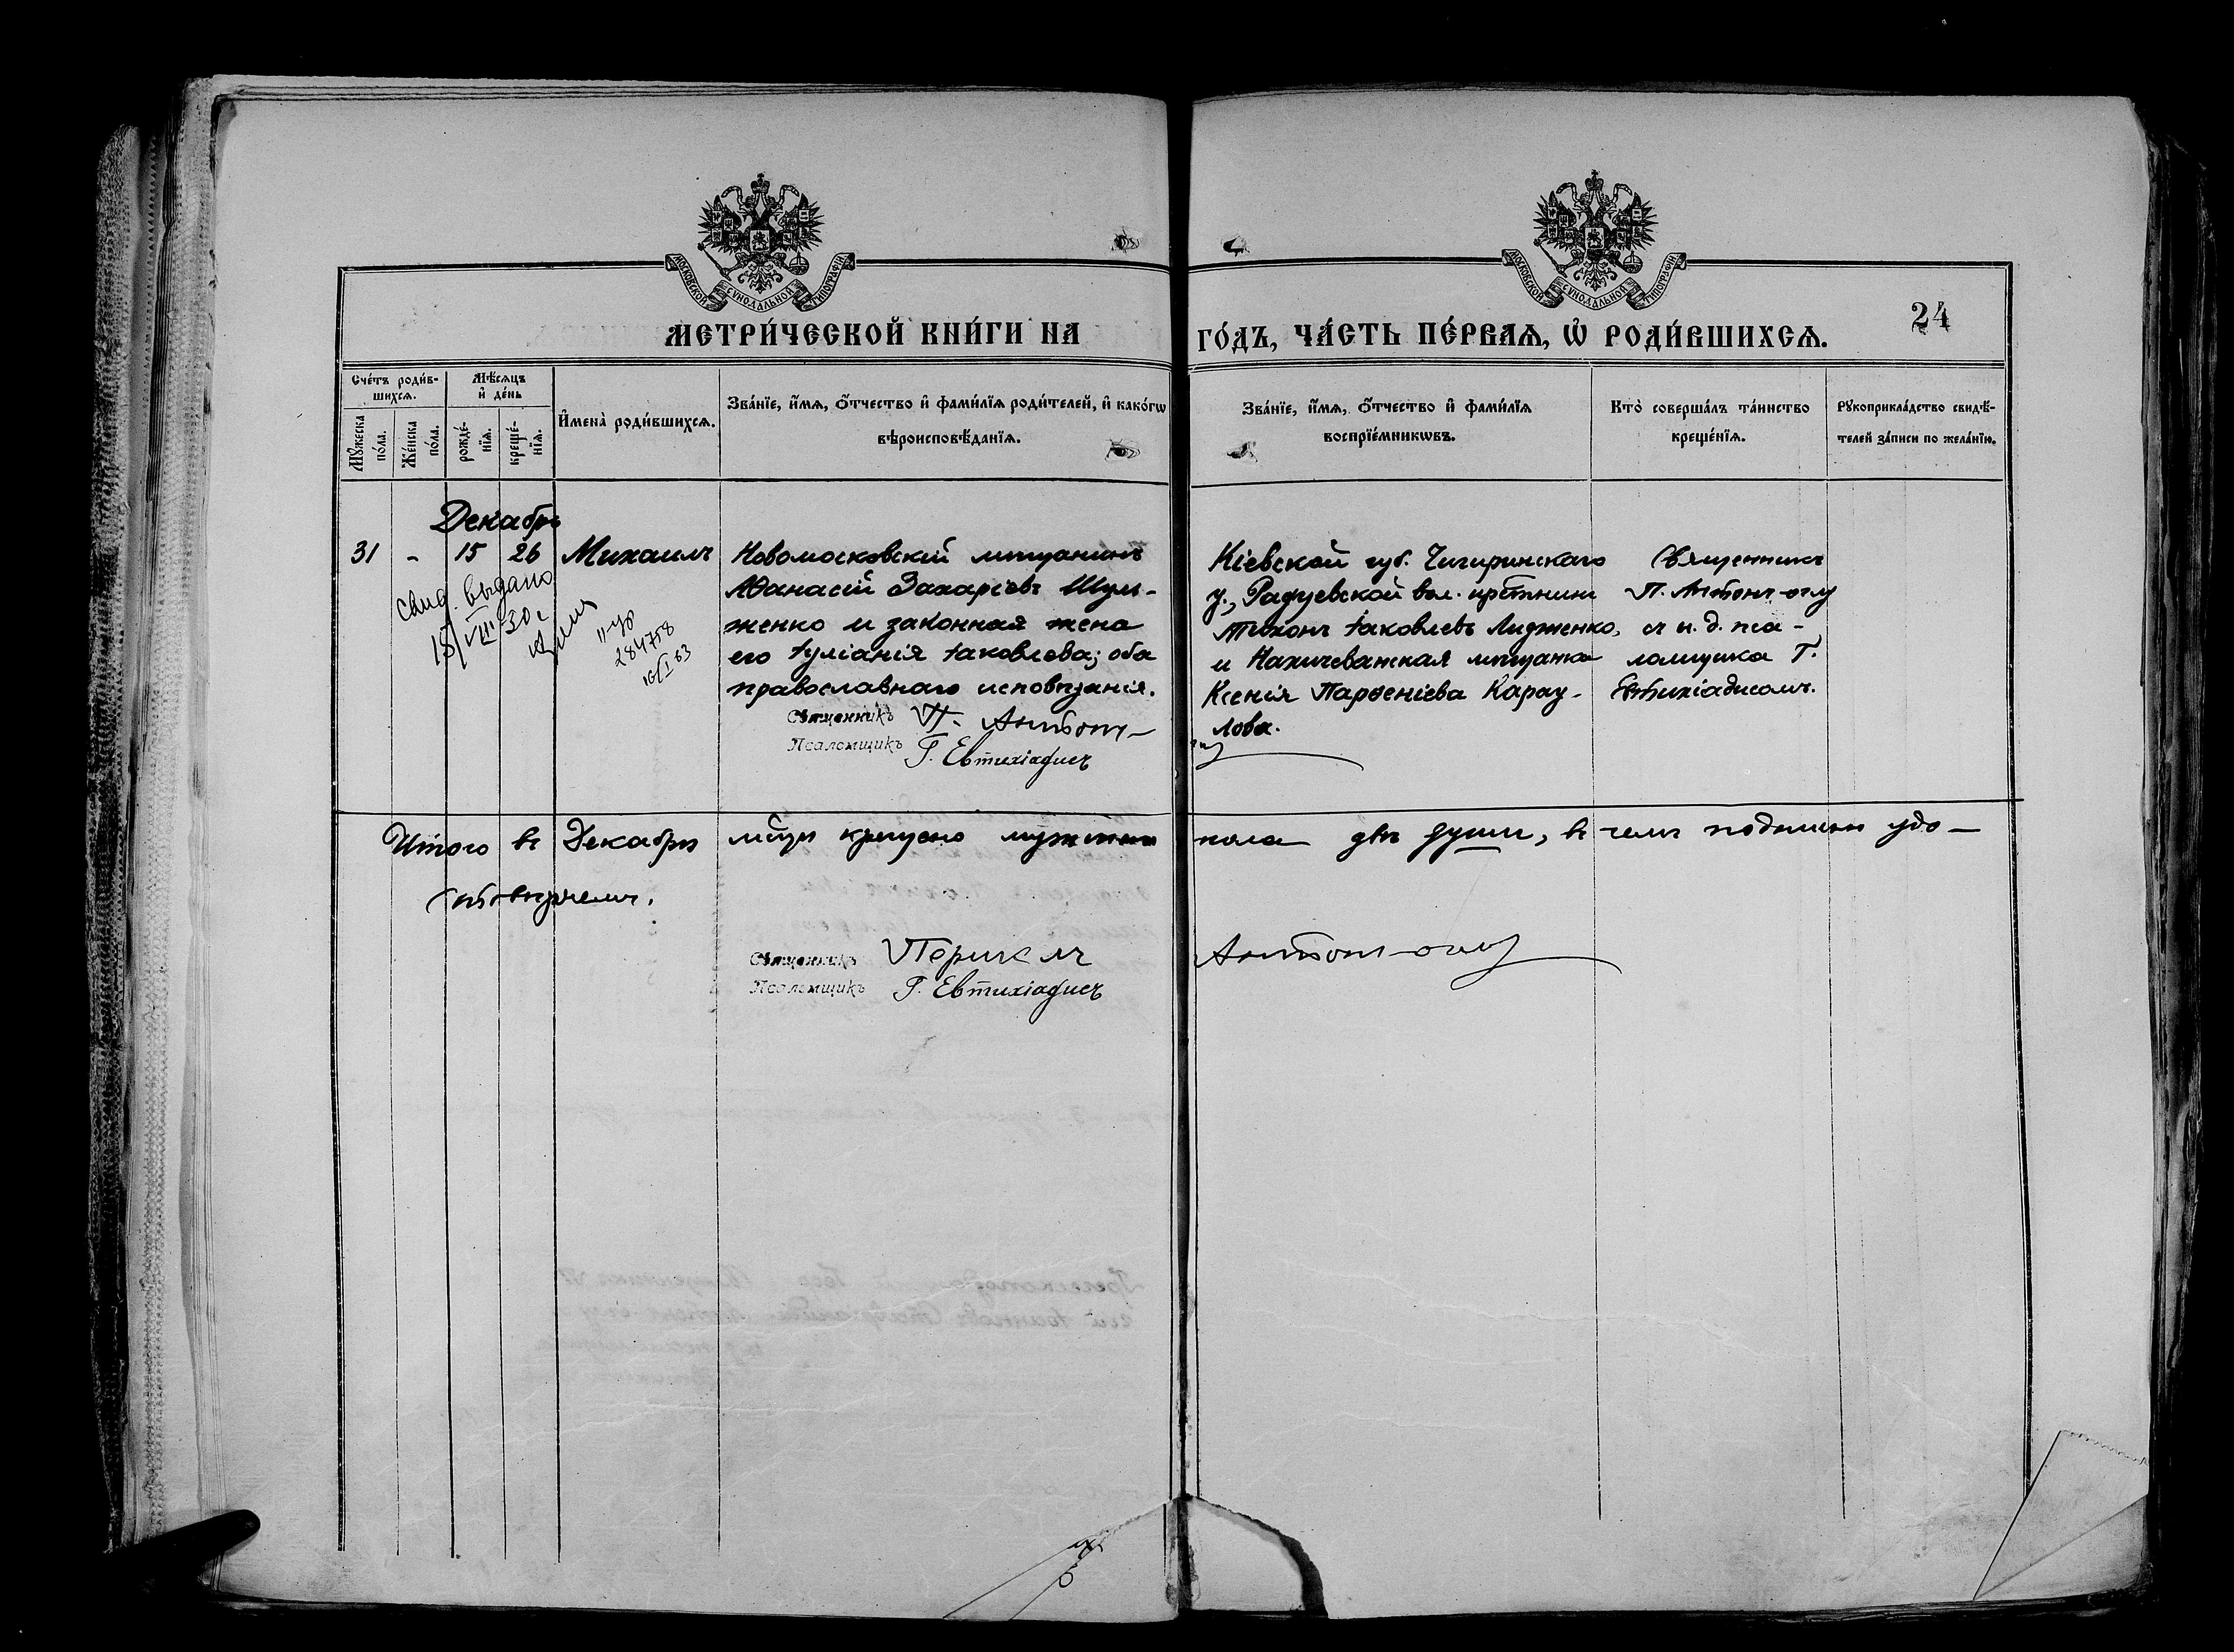 МОСКОВСКОЙ СУНОДАЛЬНОЙ ТИПОГРАФІИ
МОСКОВСКОЙ СУНОДАЛЬНОЙ ТИПОГРАФІИ
24
МЕТРИ́ЧЕСКОЙ КНИ́ГИ НА ГО́ДЪ, ЧА́СТЬ ПЕ́РВАѦ, Ѡ҆ РОДИ́ВШИХСѦ.
Сче́тъ роди́в-
шихсѧ.
Мꙋ́жеска по́ла.
Же́нска по́ла.
Мѣ́сѧцъ и҆ де́нь
рожде́-нїѧ.
креще́-нїѧ.
И҆мена̀ роди́вшихсѧ.
Зва́нїе, и҆́мѧ, ѻ҆́тчество и҆ фами́лїѧ роди́телей, и҆ како́гѡ
вѣроисповѣ́данїѧ.
Зва́нїе, и҆́мѧ, ѻ҆́тчество и҆ фами́лїѧ
воспрїе́мникѡвъ.
Кто̀ соверша́лъ та́инство
креще́нїѧ.
Рꙋкоприкла́дство свидѣ́-
телей за́писи по жела́нїю.
Декабрь
31 - 15 26 Михаилъ
Новомосковскій мѣщанинъ
Аѳанасій Захаріевъ Шул-
женко и законная жена
его Іуліанія Іаковлева; оба
православнаго исповѣданія.
Священникъ П. Антонъ-
Псаломщикъ Г. Евтихіадисъ
Кіевской губ. Чигиринскаго
у., Радуевской вол. кр̅тнинъ
Тихонъ Іаковлевъ Лидженко,
и Нахичеванская мѣщанка
Ксенія Парѳеніева Карау-
лова.
оглу
Священникъ
П. Антонъ-оглу
съ и. д. пса-
ломщика Г.
Евтихіадисомъ.
свид. выдано
18/VIII 30 г
284758
10/I 83
Итого въ Декабрѣ м̅цѣ крещено мужскаго пола двѣ души, въ чемъ подписью удо-
стовѣряемъ.
Священникъ Периклъ Антонъ-оглу
Псаломщикъ Г. Евтихіадисъ